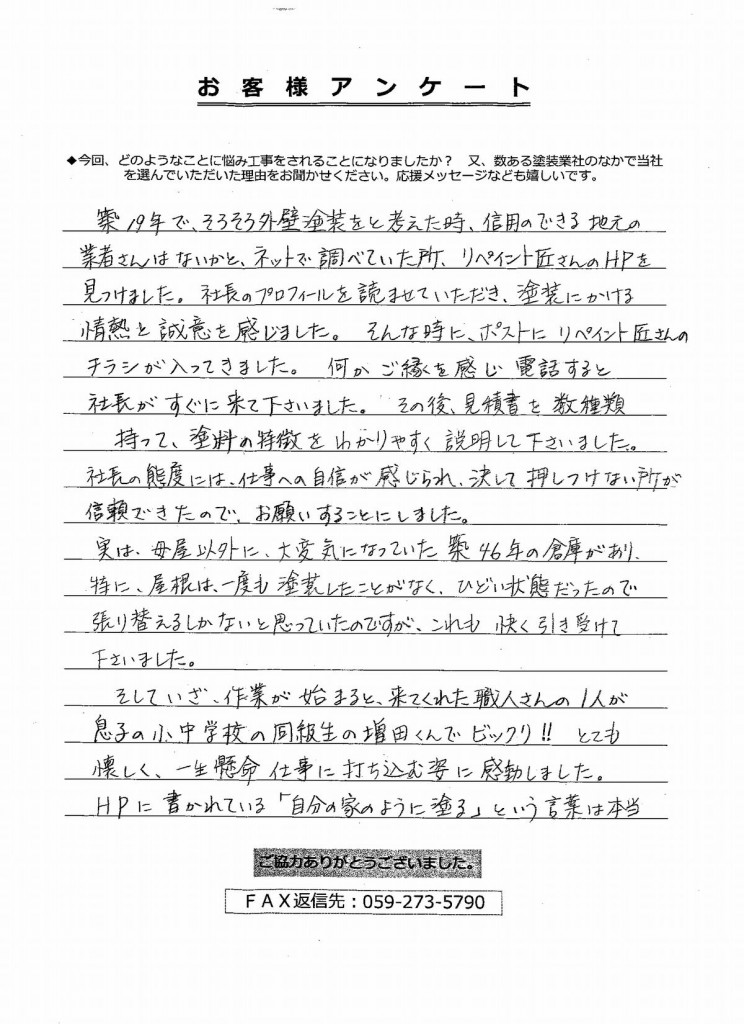 お客様アンケート
◆今回、どのようなことに悩み工事をされることになりましたか？　又、数ある塗装業社のなかで当社
を選んでいただいた理由をお聞かせください。応援メッセージなども嬉しいです。
築19年で、そろそろ外壁塗装をと考えた時、信用のできる地元の
業者さんはないかと、ネットで調べていた所、リペイント匠さんのHPを
見つけました。社長のプロフィールを読ませていただき、塗装にかける
情熱と誠意を感じました。そんな時に、ポストにリペイント匠さんの
チラシが入ってきました。何かご縁を感じ電話すると
社長がすぐに来て下さいました。その後、見積書を数種類
持って、塗料の特徴をわかりやすく説明して下さいました。
社長の態度には、仕事への自信が感じられ、決して押しつけない所が
信頼できたので、お願いすることにしました。
実は、母屋以外に、大変気になっていた築46年の倉庫があり、
特に、屋根は、一度も塗装したことがなく、ひどい状態だったので
張り替えるしかないと思っていたのですが、これも快く引き受けて
下さいました。
そしていざ、作業が始まると、来てくれた職人さんの1人が
息子の小中学校の同級生の増田くんでビックリ!!　とても
懐しく、一生懸命仕事に打ち込む姿に感動しました。
HPに書かれている「自分の家のように塗る」という言葉は本当
ご協力ありがとうございました。
ＦＡＸ返信先：059-273-5790